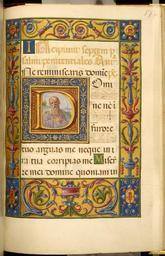 Incipiunt septem p
salmi penitentiales. An.
Ne reminiscaris domine.
Domi
ne ne i
furore
tuo arguas me neque in
ira tua corripias me. Miser
ere mei domine quoniam in